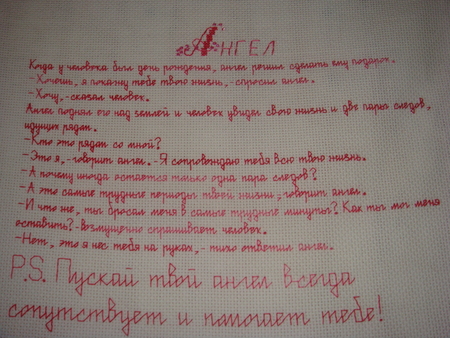 Ангел
Когда у человека был день рождения, ангел решил сделать ему подарок.
-Хочешь, я покажу тебе твою жизнь,-спросил ангел.
-Хочу,-сказал человек.
Ангел поднял его над землей и человек увидел свою жизнь и две пары следов,
идущих рядом.
-Кто это рядом со мной?
-Это я,-говорит ангел.-Я сопровождаю тебя всю твою жизнь.
-А почему иногда остается только одна пара следов?
-А это самые трудные периоды твоей жизни,-говорит ангел.
-И что же, ты бросал меня в самые трудные минуты? Как ты мог меня
оставить?-возмущенно спрашивает человек.
-Нет, это я нес тебя на руках,-тихо ответил ангел.
P.S. Пускай твой ангел всегда
сопутствует и помогает тебе!